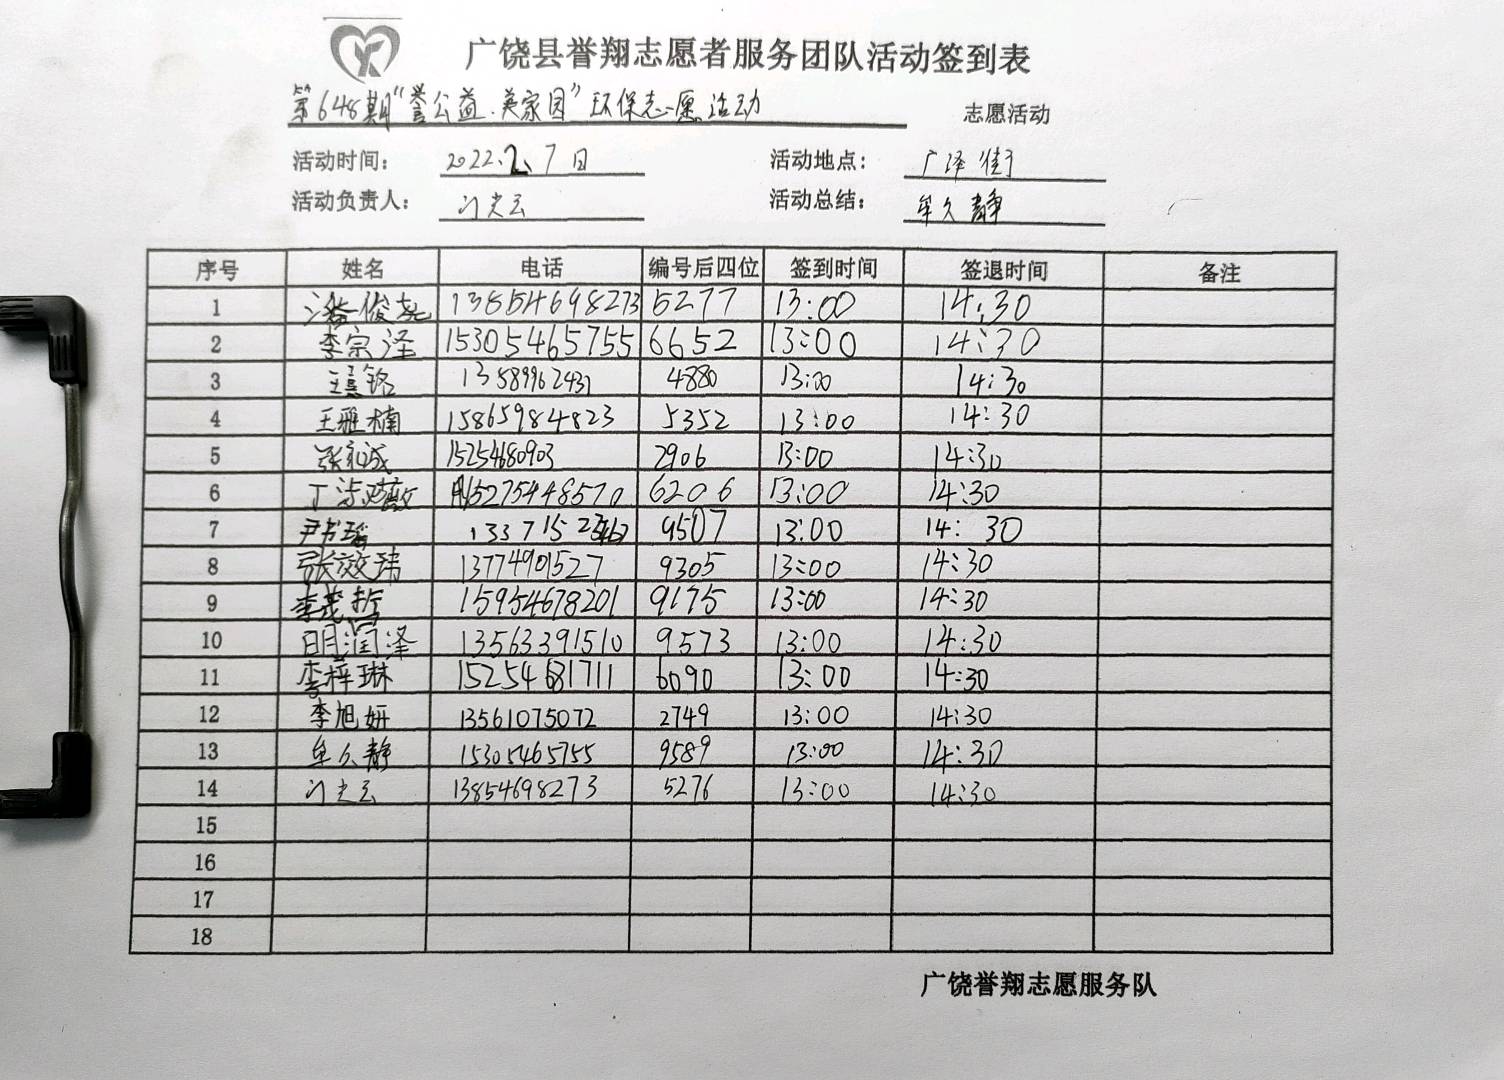 广饶县誉翔志愿者服务团队活动签到表
第648期“誉公益·美家园”环保志愿活动 志愿活动
活动时间: 2022.2.7日 活动地点: 广泽街
活动负责人: 门光云 活动总结: 牟久静
序号 姓名 电话 编号后四位 签到时间 签退时间 备注
1 潘俊尧 13854698273 5277 13:00 14:30
2 李宗泽 15305465755 6652 13:00 14:30
3 铭 13589962431 4880 13:00 14:30
4 王雅楠 15865984823 5352 13:00 14:30
5 张 诚 15254680903 2906 13:00 14:30
6 丁 15275448570 6206 13:00 14:30
7 尹书瑶 9507 13:00 14:30
8 张效玮 13774901527 9305 13:00 14:30
9 李茂哲 15954678201 9175 13:00 14:30
10 明润泽 13563391510 9573 13:00 14:30
11 李梓琳 15254681711 6090 13:00 14:30
12 李旭妍 13561075072 2749 13:00 14:30
13 牟久静 15305465755 9589 13:00 14:30
14 门光云 13854698273 5276 13:00 14:30
15
16
17
18
广饶誉翔志愿服务队